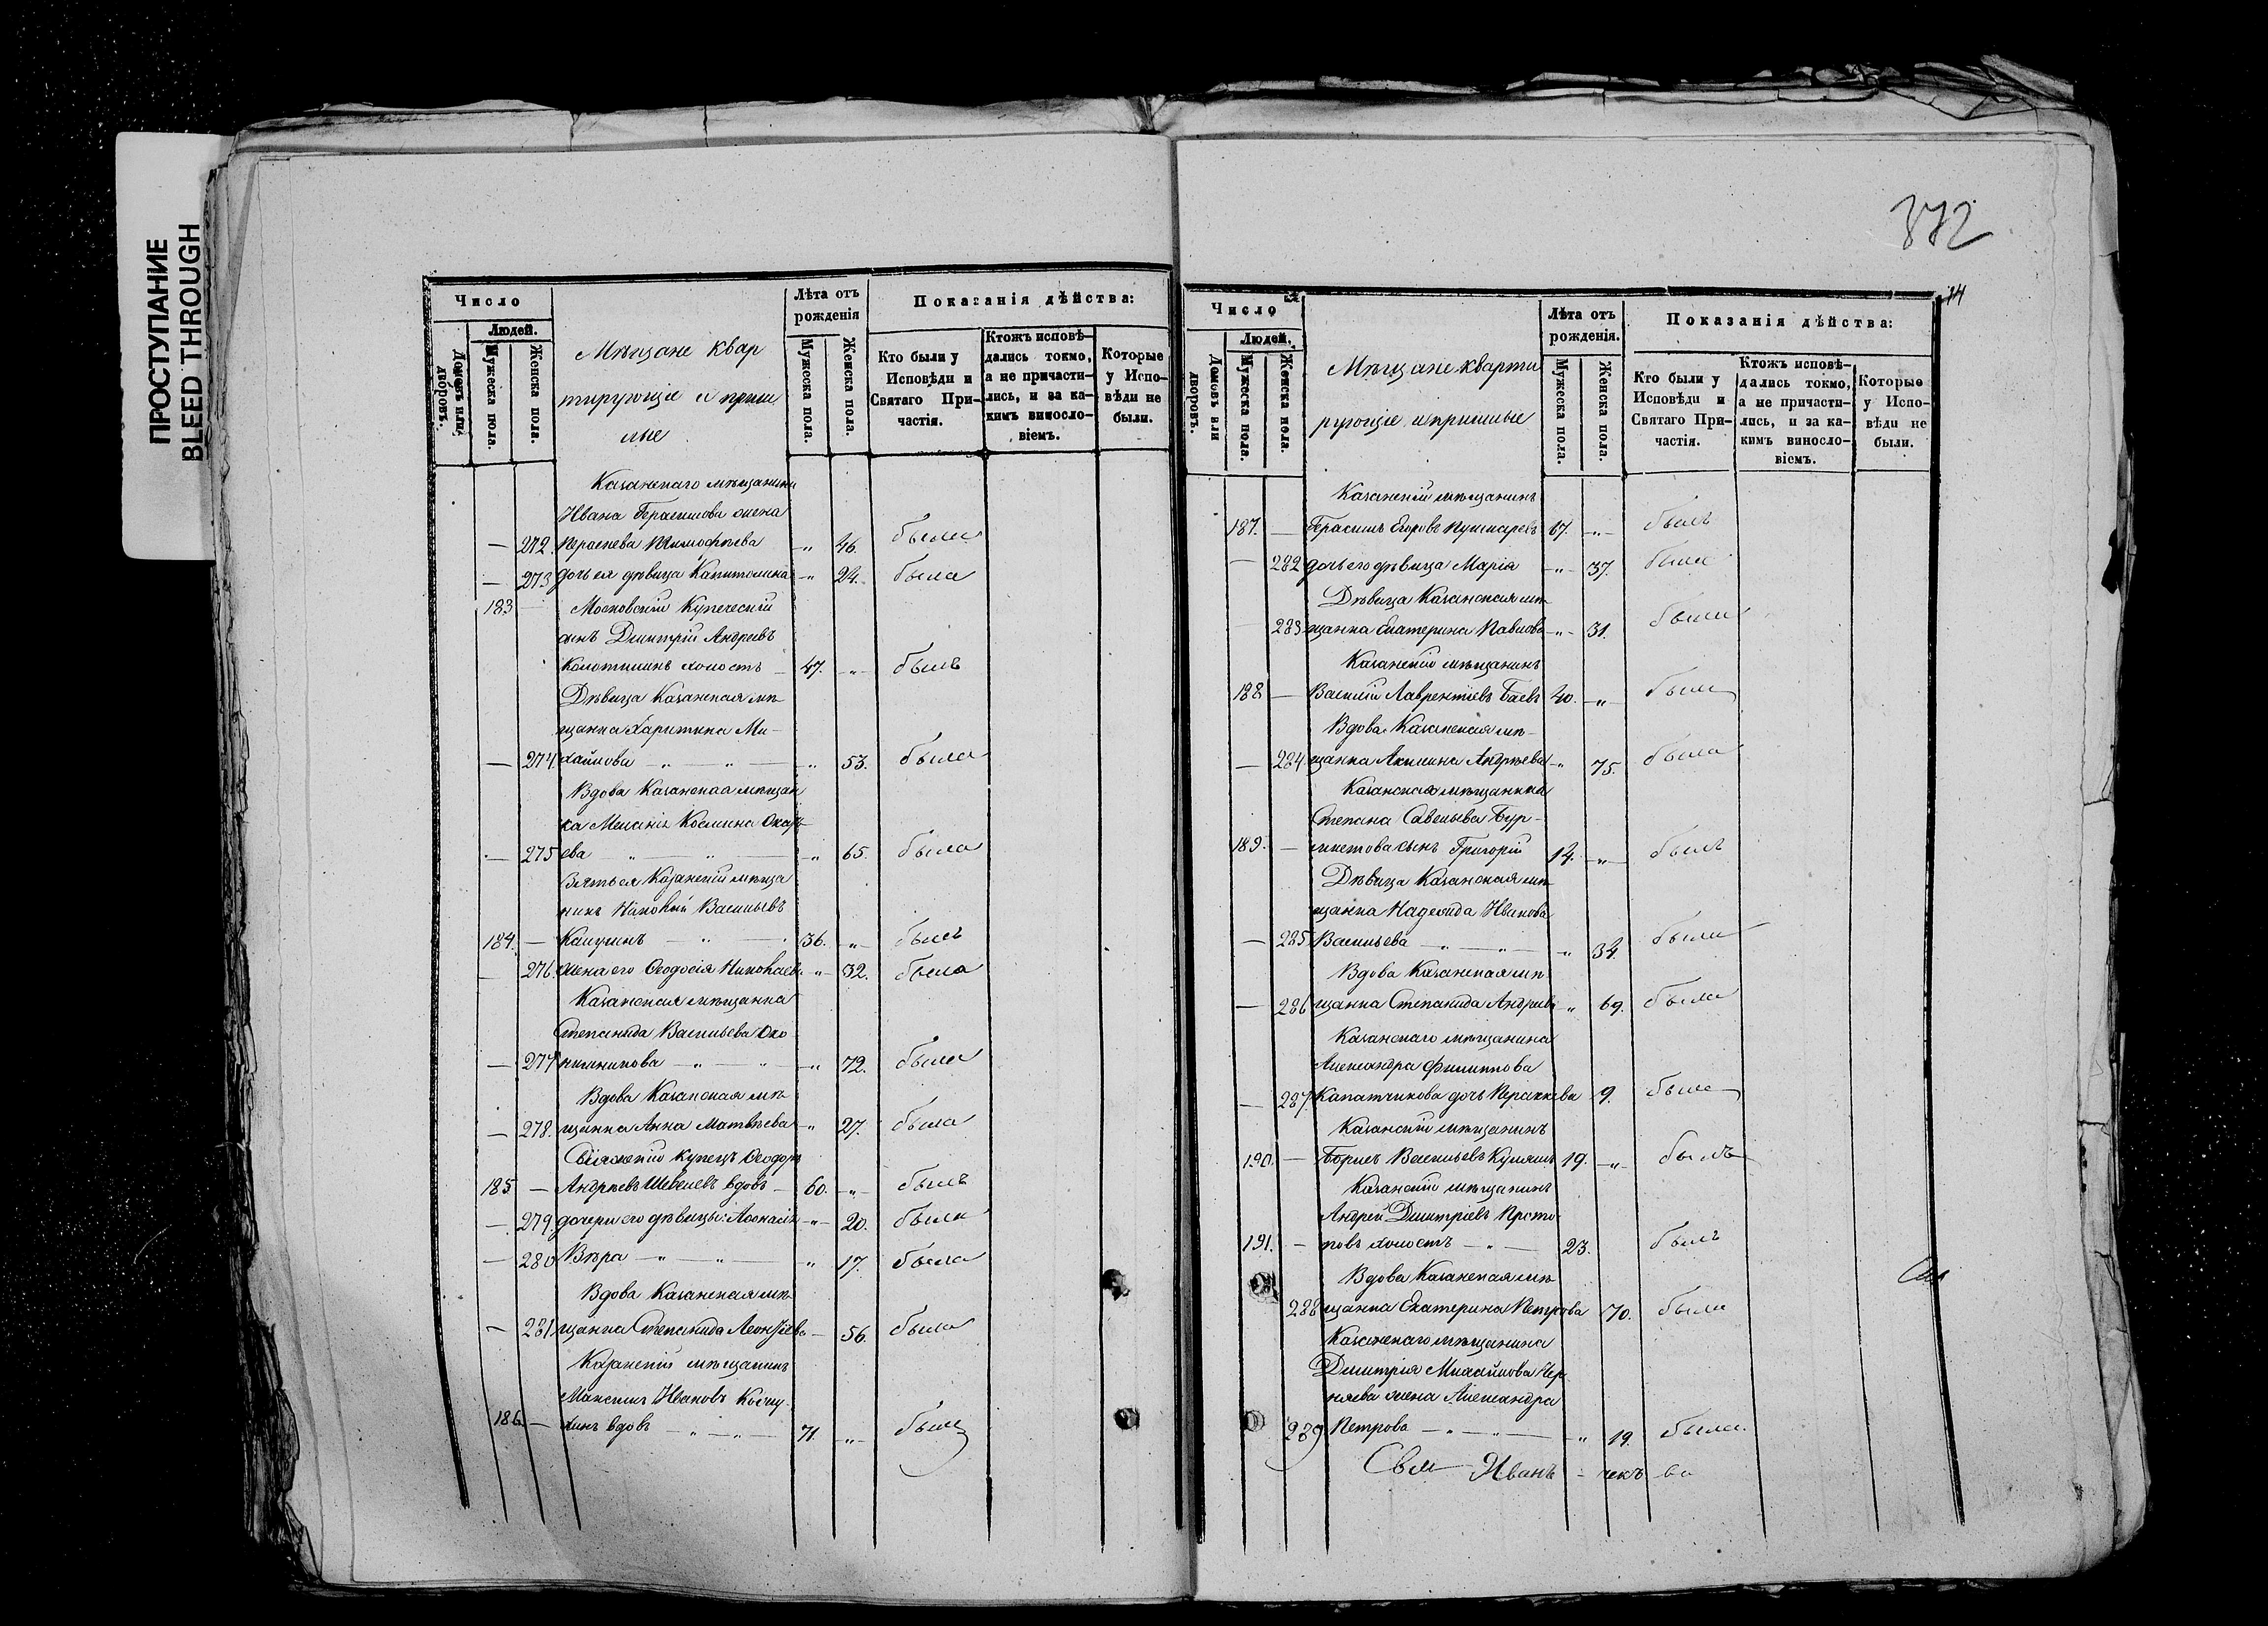 ПРОСТУПАНИЕ
BLEED THROUGH
Число
Людей.
Домовъ или дворовъ.
Мужеска пола.
Женска пола.
Мѣщане квар
тирующіе и приш
лые
Лѣта отъ рожденія
Мужеска пола.
Женска пола.
Показанія дѣйства:
Кто были у Исповѣди и Святаго Причастія.
Ктожъ исповѣдались токмо, а не причастились, и за какимъ винословіемъ.
Которые у Исповѣди не были.
Казанскаго мѣщанина
Ивана Герасимова жена
— 272 Параскева Тимофѣева — " 46. была
— 273 дочь ея дѣвица Капитолина — " 24. была
183 — Московскій Купеческій
сынъ Дмитрій Андреевъ
холостъ — 47. — " — былъ
Дѣвица Казанская мѣ-
щанка Харитина Ми-
— 274. хайлова — " — " — " 53. была
Вдова Казанская мѣщан
ка Меланія Космина
— 275 ева " — " — " 65. была
Зять ея Казанскій мѣща
нинъ Василь​евъ
184. — — " — 36. — " — былъ
— 276. жена его Ѳеодосія Николаева — " — 32. была
Казанская мѣщанка
Степанида Васильева Око
— 277 нишникова — " — " — " 72. была
Вдова Казанская мѣ-
— 278. щанка Анна Матвѣева — " 27. была
Свіяжскій купецъ Ѳеодоръ
185 — Андреевъ Шевелевъ вдовъ — 60. — " — былъ
— 279. дочери его дѣвицы: Аѳонасія — " — 20. была
— 280 Вѣра — " — " — " 17. была
Вдова Казанская мѣ-
— 281 щанка Степанида Леонтіева — 56. была
Казанскій мѣщанинъ
Максимъ Ивановъ
186. — хинъ вдовъ — " — " — 71. — " — былъ
372
14
Число
Людей.
Домовъ или дворовъ.
Мужеска пола.
Женска пола.
Мѣщане кварти
рующіе и пришлые
Лѣта отъ рожденія.
Мужеска пола.
Женска пола.
Показанія дѣйства:
Кто были у Исповѣди и Святаго Причастія.
Ктожъ исповѣдались токмо, а не причастились, и за какимъ винословіемъ.
Которые у Исповѣди не были.
Казанскій мѣщанинъ
187. — Герасимъ Егоровъ Пушкаревъ 67. — " — былъ
— 282 дочь его дѣвица Марія — " — 37. была
Дѣвица Казанская мѣ-
283 щанка Екатерина Павлова — " — 31. была
Казанскій мѣщанинъ
188 — Василій Лаврентіевъ Баевъ 40. — " — былъ
Вдова Казанская мѣ-
— 284. щанка Акилина Андреева — " 75. была
Казанская мѣщанина
Степана Савельева Бур-
189. — метова сынъ Григорій 14. — " — былъ
Дѣвица Казанская мѣ-
щанка Надежда Иванова
— 285 Васильева — " — " — " 34. была
Вдова Казанская мѣ-
— 286 щанка Степанида Андреева " 69. была
Казанскаго мѣщанина
Александра Филиппова
— 287. Капатчикова дочь Параскева 9. была
Казанскій мѣщанинъ
190. — Борисъ Васильевъ 19. — " — былъ
Казанскій мѣщанинъ
Андрей Дмитріевъ Прото
191. — повъ холостъ — " — 23. былъ
Вдова Казанская мѣ-
288 щанка Екатерина Петрова 70. была
Казанскаго мѣщанина
Дмитрія Михайлова Чер
няева жена Александра
289 Петрова — " — " — " 19. была.
Иванъ